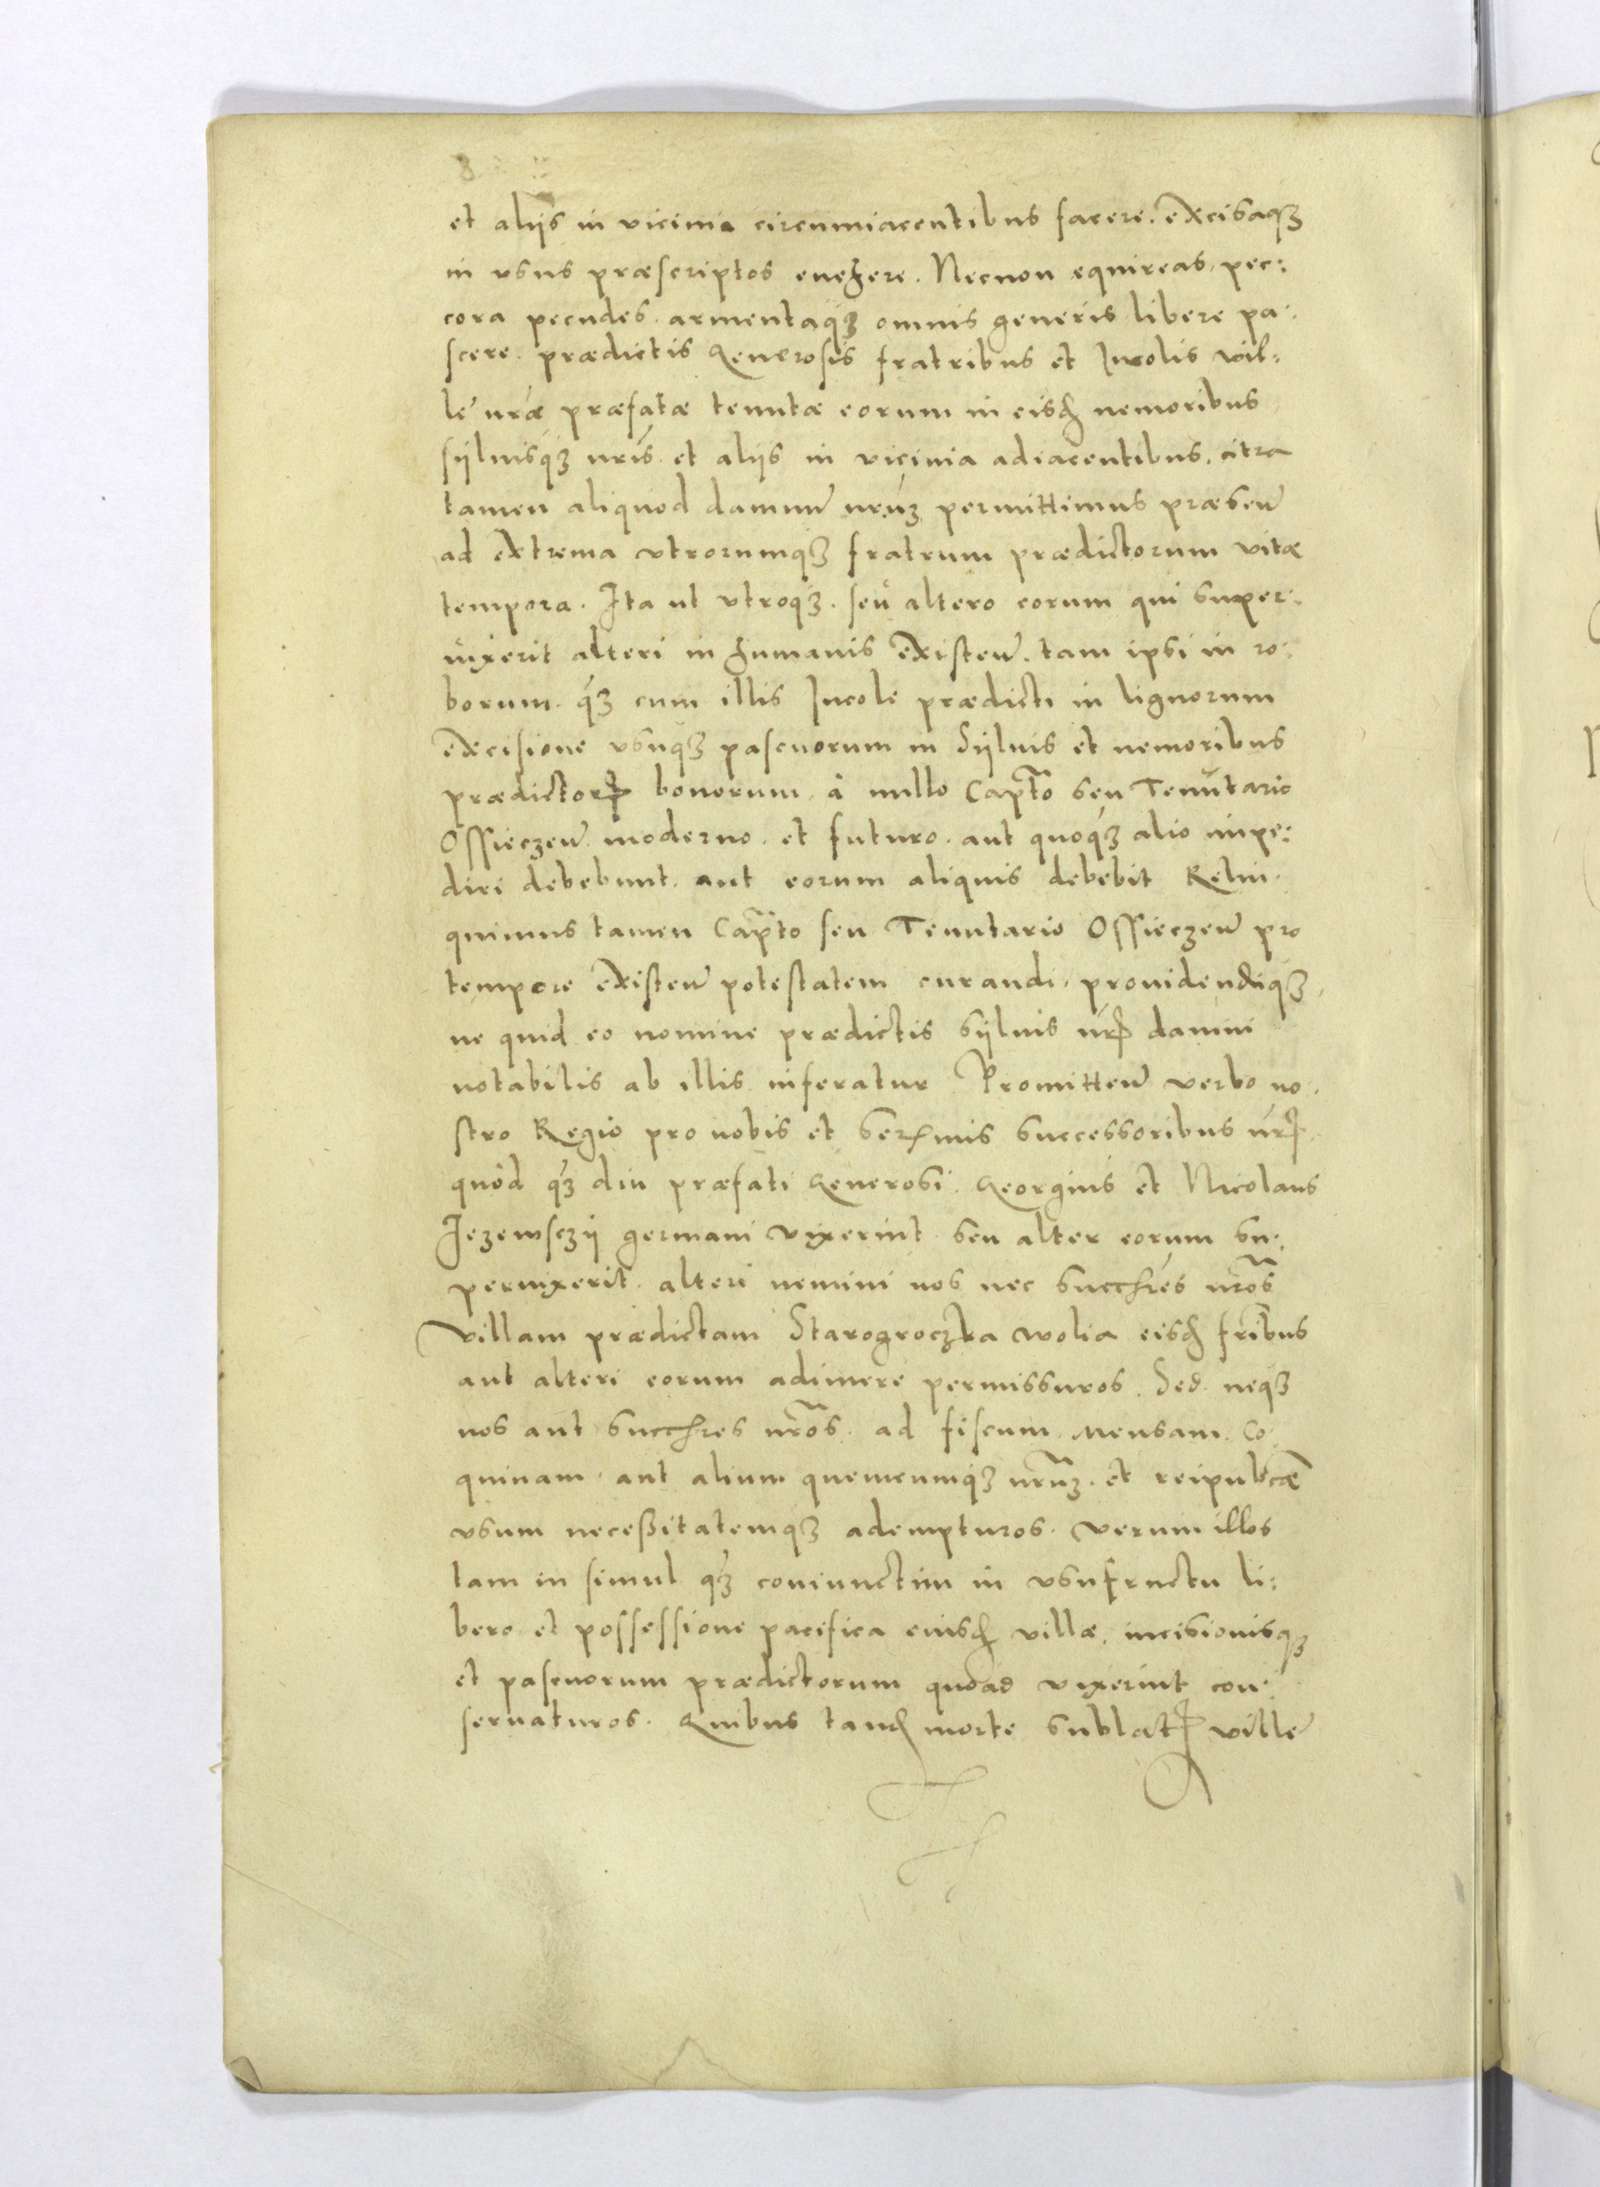 8
et aliis in vicinia circumiacentibus facere. excisaqȝ
in vsus præscriptos evehere. Necnon equireas, pec:
cora pecudes. armentaqȝ omnis generis libere pa:
scere. prædictis Generosis fratribus et Incolis vil:
le nr̃æ præfatæ tenutæ eorum in eisd̃ nemoribus
sylvisqȝ nr̃is et aliis in vicinia adiacentibus, citra
tamen aliquod damnũ nr̃uȝ permittimus præseñ
ad extrema vtrorumqȝ fratrum prædictorum vitæ
tempora. Ita ut vtroqȝ. seu altero eorum qui super:
vixerit alteri in humanis existeñ. tam ipsi in ro:
borum. qȝ cum illis Incole prædicti in lignorum
excisione vsuqȝ pascuorum in Sylvis et nemoribus
prædictorꝝ bonorum. à nullo Capt̃o seu Tenutario
Ossieczeñ moderno. et futuro. aut quoqȝ alio impe:
diri debebunt. aut eorum aliquis debebit Relin:
quimus tamen Capt̃o seu Tenutario Ossieczeñ pro
tempore existeñ potestatem curandi, providendiqȝ,
ne quid eo nomine prædictis sylvis nr̃is damni
notabilis ab illis inferatur Promitteñ verbo no:
stro Regio pro nobis et Ser̃mis successoribus nr̃is.
quòd qȝ diu præfati Generosi. Georgius et Nicolaus
Jezewsczÿ germani vixerint seu alter eorum su:
pervixerit. alteri nemini nos nec succh̃res nr̃os
villam prædictam Starogroczka wolia eisd̃ fr̃ibus
aut alteri eorum adimere permissuros. Sed neqȝ
nos aut succh̃res nr̃os. ad fiscum Mensam. Co:
quinam. aut alium quemcumqȝ nr̃uȝ. et reipub̃cæ
vsum neceßitatemqȝ adempturos. verum illos
tam in simul qȝ coniunctim in vsufructu li:
bero et possessione pacifica eiusd̃ villæ, incisionisqȝ
et pascuorum prædictorum quoad vixerint con:
servaturos. Quibus tand̃ morte sublatis ville